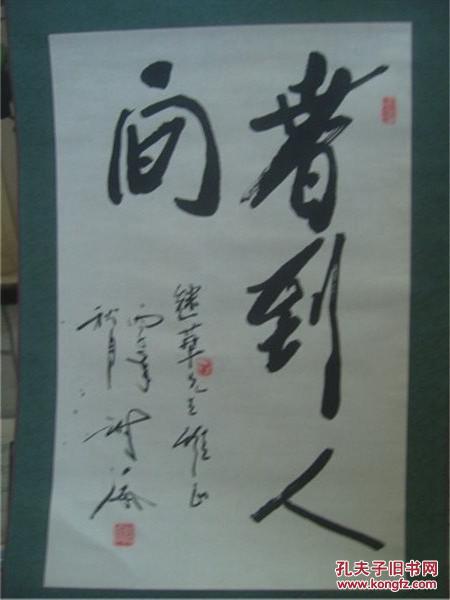 春到人
间
继華先生雅正
秋月
孔夫子旧书网
www.kongfz.com